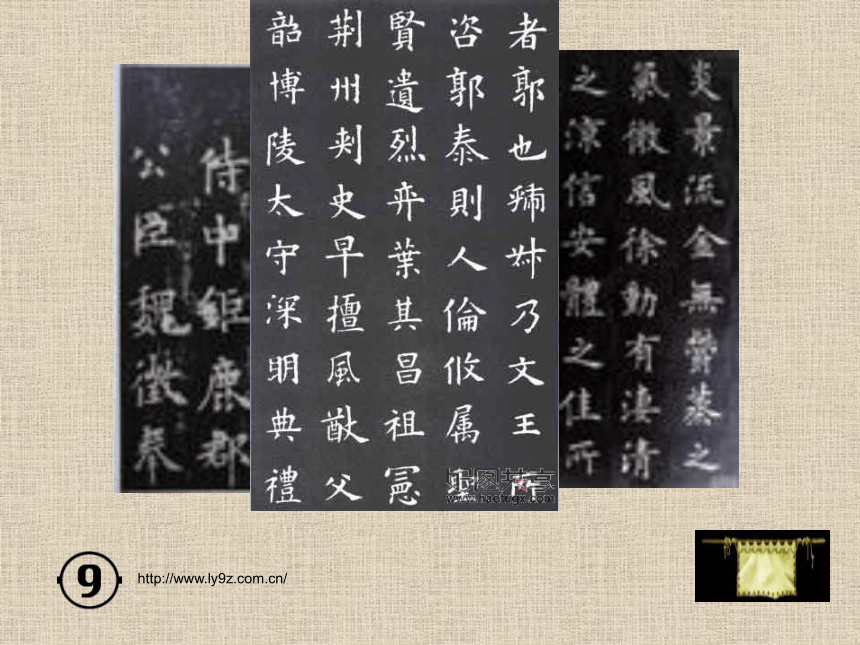 炎景流金無鬱蒸之
氣微風徐動有淒清
之涼信安體之佳所
者郭也虢叔乃文王所
咨郭泰則人倫攸属聖
賢遺烈弈葉其昌祖憲
荆州刺史早擅風猷父
韶博陵太守深明典禮
侍中鉅鹿郡
公臣魏徵奉
9
http://www.ly9z.com.cn/